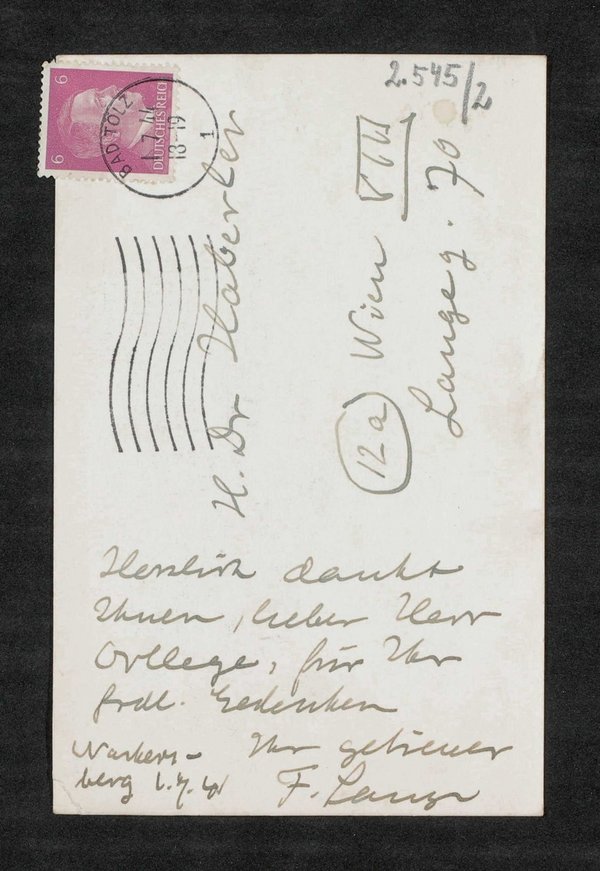 2.545/2
6
6
DEUTSCHES REICH
BAD TÖLZ
1
18-19
H. Dr Haberler
12a Wien VIII
Langeg. 70
Herzlich dankt
Ihnen, lieber Herr
Collega, für Ihr
frdl. Gedenken
Ihr getreuer
Wackers-
berg 1.7.41